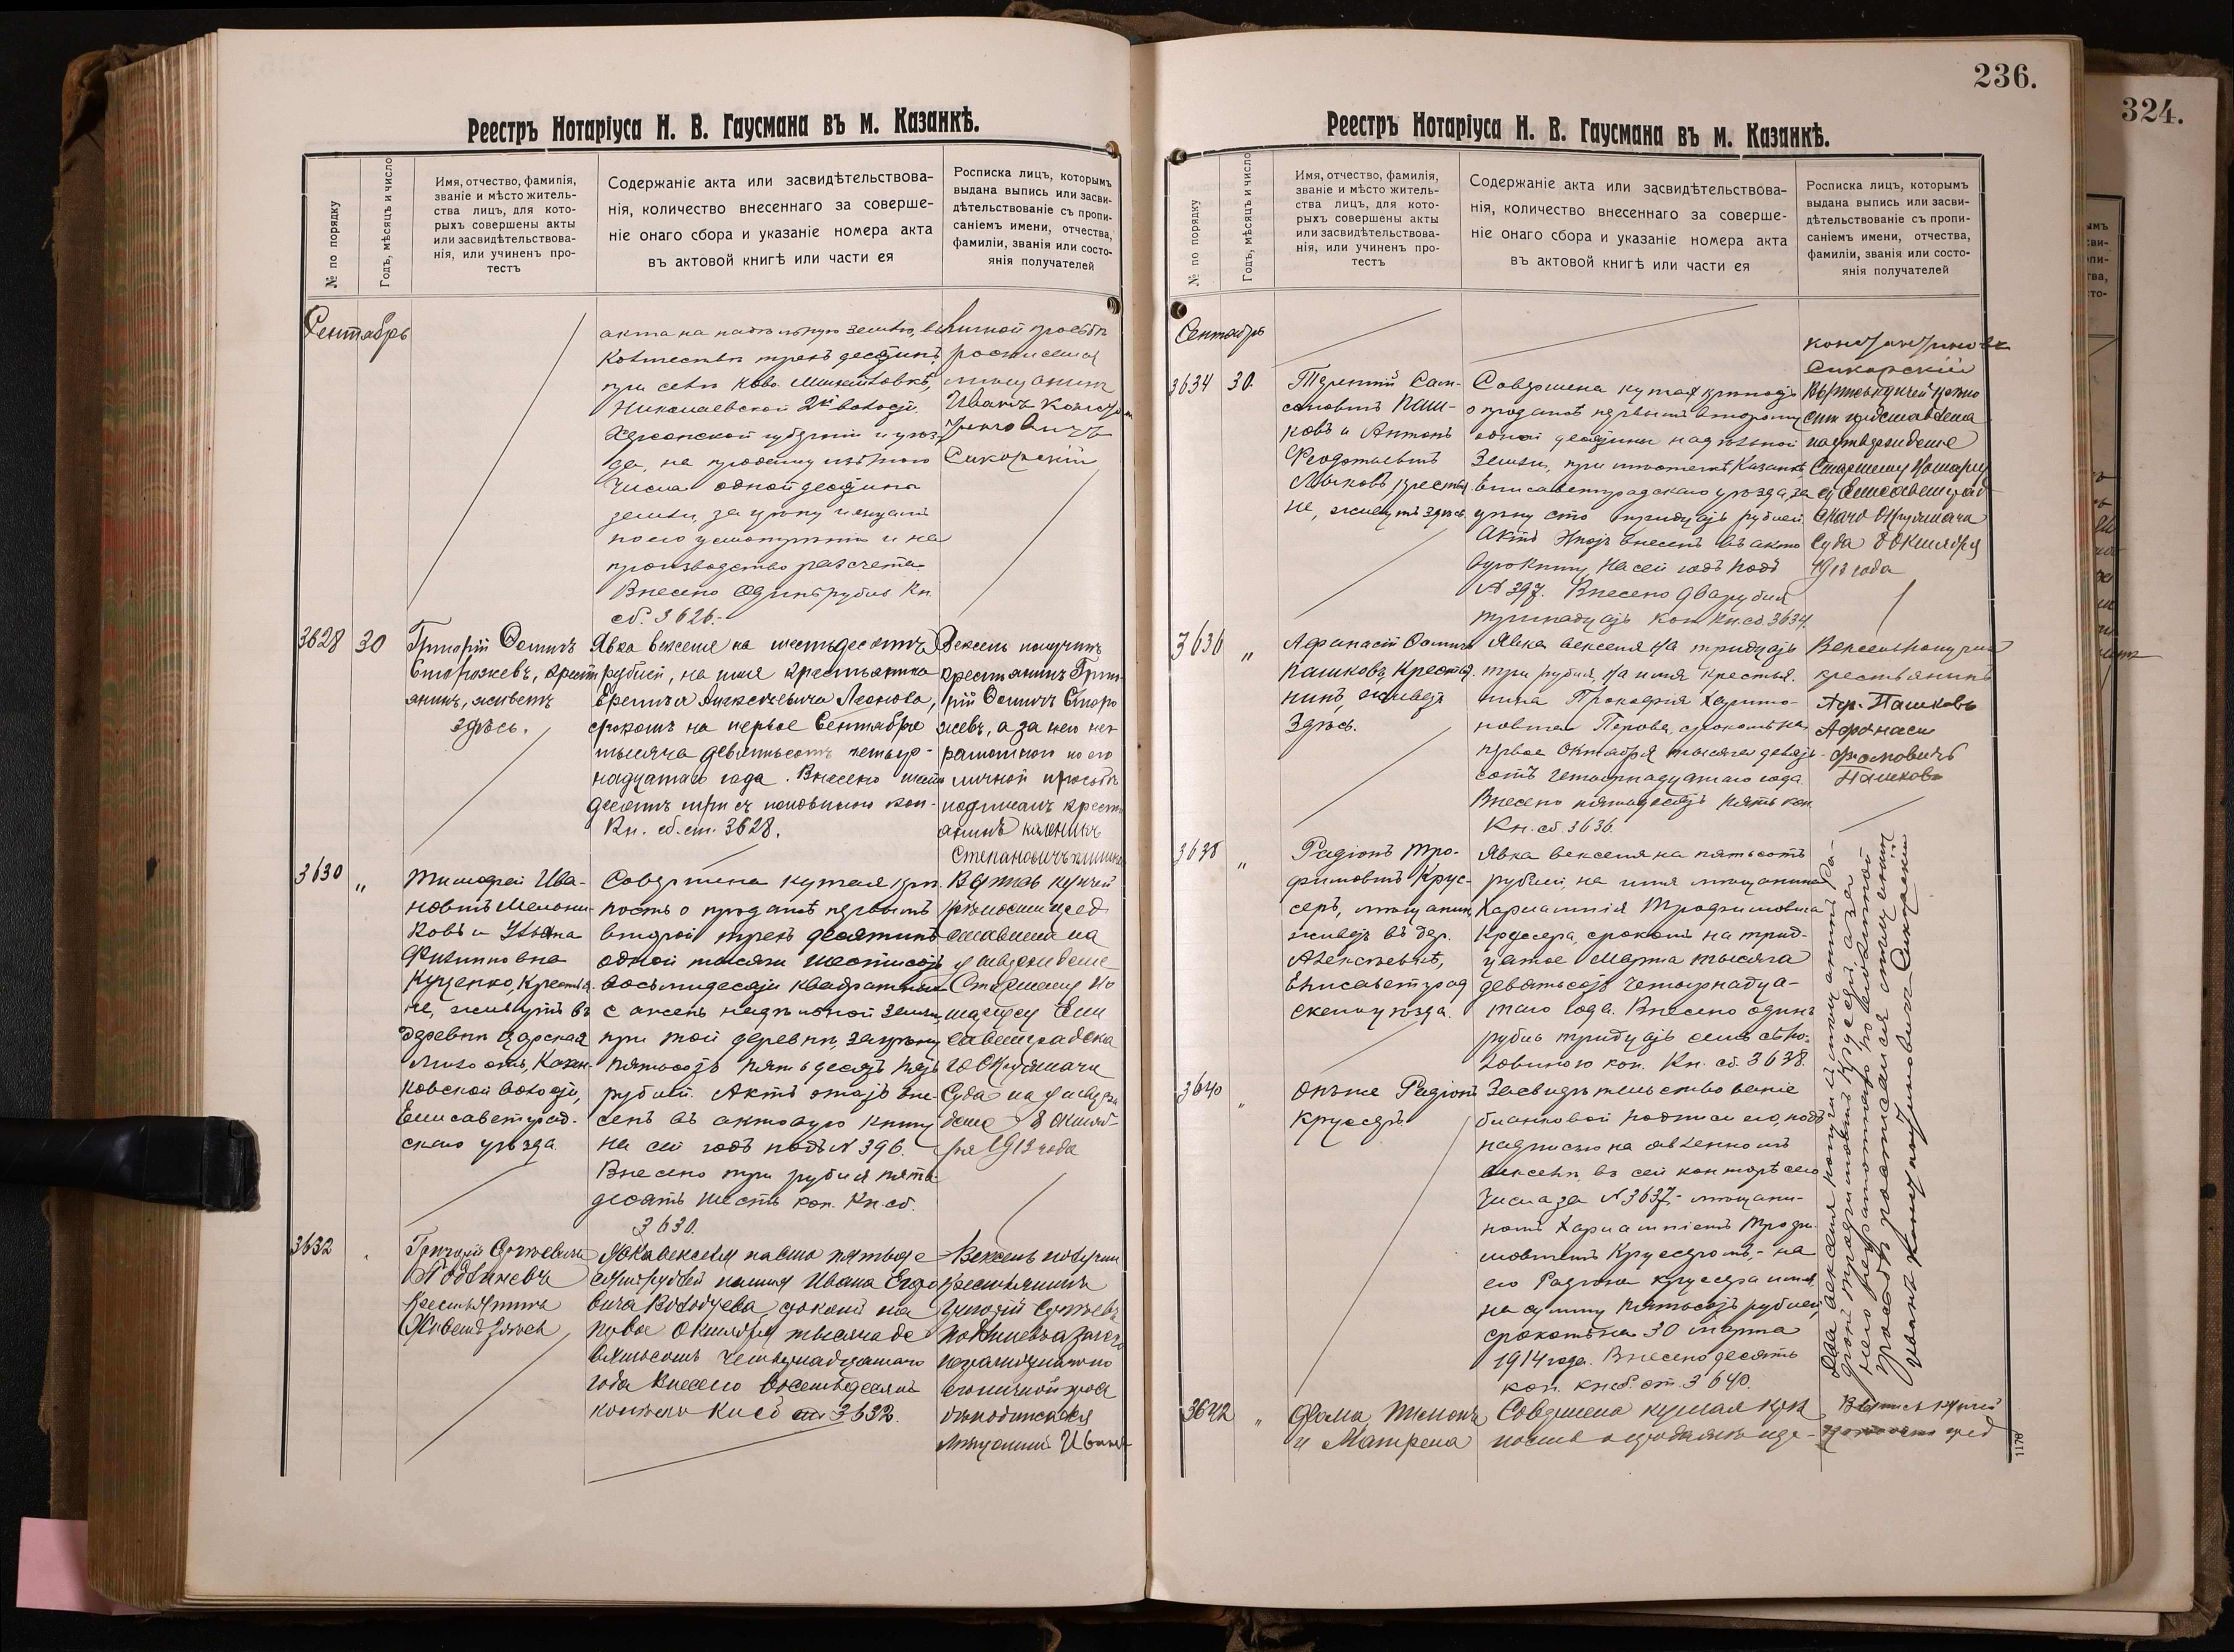 Реестръ Нотаріуса Н. В. Гаусмана въ м. Казанкѣ.
№ по порядку
Годъ, мѣсяцъ и число
Имя, отчество, фамилія,
званіе и мѣсто житель-
ства лицъ, для кото-
рыхъ совершены акты
или засвидѣтельствова-
нія, или учиненъ про-
тестъ
Содержаніе акта или засвидѣтельствова-
нія, количество внесеннаго за соверше-
ніе онаго сбора и указаніе номера акта
въ актовой книгѣ или части ея
Росписка лицъ, которымъ
выдана выпись или засви-
дѣтельствованіе съ пропи-
саніемъ имени, отчества,
фамиліи, званія или состо-
янія получателей
Сентябрь
акта на надѣльную землю, въ
количествѣ трехъ десятинъ,
при селѣ Ново.
Николаевской 2й волости,
Херсонской губерніи и уѣз-
да, на продажу изъ того
числа одной десятины
земли, за цѣну и лицамъ
по его усмотрѣнію и на
производство разсчета.
Внесено Одинъ рубль Кн.
сб. 3626.-
личной просьбѣ
росписался
мѣщанинъ
Иванъ Констан
тиновичъ
Сикорскій
3628
30
Григорій Осиповъ
Сторожевъ, крест
янинъ, живетъ
здѣсь.
Явка векселя на шестьдесятъ
рублей, на имя крестьянина
Еремѣя Алексѣевича Леонова,
срокомъ на первое Сентября
тысяча девятьсотъ четыр-
надцатаго года. Внесено шесть
десятъ три съ половиною коп.
Кн. сб. ст. 3628.
Вексель получилъ
крестьянинъ Григо
рій Осиповъ Сторо
жевъ, а за него негра
мотнаго по его
личной просьбѣ
подписалъ кресть
янинъ Калениkъ
Степановичъ
3630
"
Тимофей Ива-
новичъ Мельни-
ковъ и Ульяна
Филипповна
Куценко, Крестья-
не, живутъ въ
деревни Царская
Милость, Казан-
ковской волости,
Елисаветград-
скаго уѣзда.
Совершена купчая крѣ-
пость о продажѣ первымъ
второй трехъ десятинъ
одной тысячи шестисотъ
восьмидесяти квадратныхъ
сажень надѣльной земли,
при той деревни, за цѣну
пятьсотъ пятьдесятъ пять
рублей. Актъ этотъ вне-
сенъ въ актовую книгу
на сей годъ подъ № 396.
Внесено три рубля пять-
десятъ шесть коп. Кн. сб.
3630.
Выпись купчей
крѣпости пред
ставлена на
утвержденіе
Старшему Но
таріусу Ели
саветградска
го Окружнаго
Суда на утверж
деніе 8 октяб
ря 1913 года
3632
Григорій Сергѣевичъ
Крестьянинъ
Живетъ здѣсь
Явка векселя на сто пятьде
сятъ рублей на имя Ивана
срокомъ на
первое Октября тысяча де
вятьсотъ четырнадцатаго
года Внесено восемьдесятъ
копѣекъ Кн сб ст 3632.
Вексель получилъ
крестьянинъ
Григорій Сергѣевъ
неграмотнаго по
его личной прось
бѣ подписался
мѣщанинъ Иванъ
236.
Реестръ Нотаріуса Н. В. Гаусмана въ м. Казанкѣ.
№ по порядку
Годъ, мѣсяцъ и число
Имя, отчество, фамилія,
званіе и мѣсто житель-
ства лицъ, для кото-
рыхъ совершены акты
или засвидѣтельствова-
нія, или учиненъ про-
тестъ
Содержаніе акта или засвидѣтельствова-
нія, количество внесеннаго за соверше-
ніе онаго сбора и указаніе номера акта
въ актовой книгѣ или части ея
Росписка лицъ, которымъ
выдана выпись или засви-
дѣтельствованіе съ пропи-
саніемъ имени, отчества,
фамиліи, званія или состо-
янія получателей
Сентябрь
Константиновъ
Сикорскій
3634
30.
Терентій Сам-
соновичъ Паш-
ковъ и Антонъ
Лычковъ, крестья-
не, живутъ здѣсь
Совершена купчая крѣпость
о продажѣ первымъ второму
одной десятины надѣльной
земли, при мѣстечкѣ Казанкѣ
Елисаветградскаго уѣзда, за
цѣну сто тридцать рублей.
Актъ этотъ внесенъ въ акто
вую книгу на сей годъ подъ
№ 397. Внесено два рубля
тринадцать коп Кн. сб. 3634.
Выпись купчей крѣпо
сти представлена
на утвержденіе
Старшему Нотаріу
су Елисаветград
скаго Окружнаго
Суда 8 Октября
1913 года
3636
"
Афанасій
Пашковъ, крестья-
нинъ, живетъ
здѣсь.
Явка векселя на тридцать
три рубля, на имя крестья-
нина Прокофія Харито-
новича Перова, срокомъ на
первое Октября тысяча девять-
сотъ четырнадцатаго года.
Внесено пятьдесятъ пять коп.
Кн. сб. 3636.
Вексель получилъ
крестьянинъ
Аф. Пашковъ
Афонаси
Пашковъ
3638
"
Радіонъ Тро-
фимовичъ Крус-
серъ, мѣщанинъ,
живетъ въ дер.
Алексѣевкѣ,
Елисаветград
скаго уѣзда.
Явка векселя на пятьсотъ
рублей, на имя мѣщанина
Харлампія Трофимовича
Круссера, срокомъ на трид-
цатое Марта тысяча
девятьсотъ четырнадца-
таго года. Внесено одинъ
рубль тридцать семь съ по-
ловиною коп. Кн. сб. 3638.
3640
"
Онъ же Радіонъ
Круссеръ
Засвидѣтельствованіе
бланковой подписи его, подъ
надписью на явленномъ
векселѣ въ сей конторѣ сего
числа за № 3637 - мѣщани-
номъ Харлампіемъ Трофи-
мовичемъ Круссеромъ, - на
его Радіона Круссера имя,
на сумму пятьсотъ рублей,
срокомъ на 30 марта
1914 года. Внесено десять
коп. кн. сб. ст. 3640.
Два векселя получилъ мѣщанинъ Ра-
діонъ Трофимовичъ Круссеръ, а за
него неграмотнаго по его личной
просьбѣ росписался мѣщанинъ
Иванъ Константиновичъ Сикорскій
3642
"
Фома, Тихонъ
и Матрена
Совершена купчая крѣ
пость о продажѣ
Выпись купчей
крѣпости пред
1178
324.